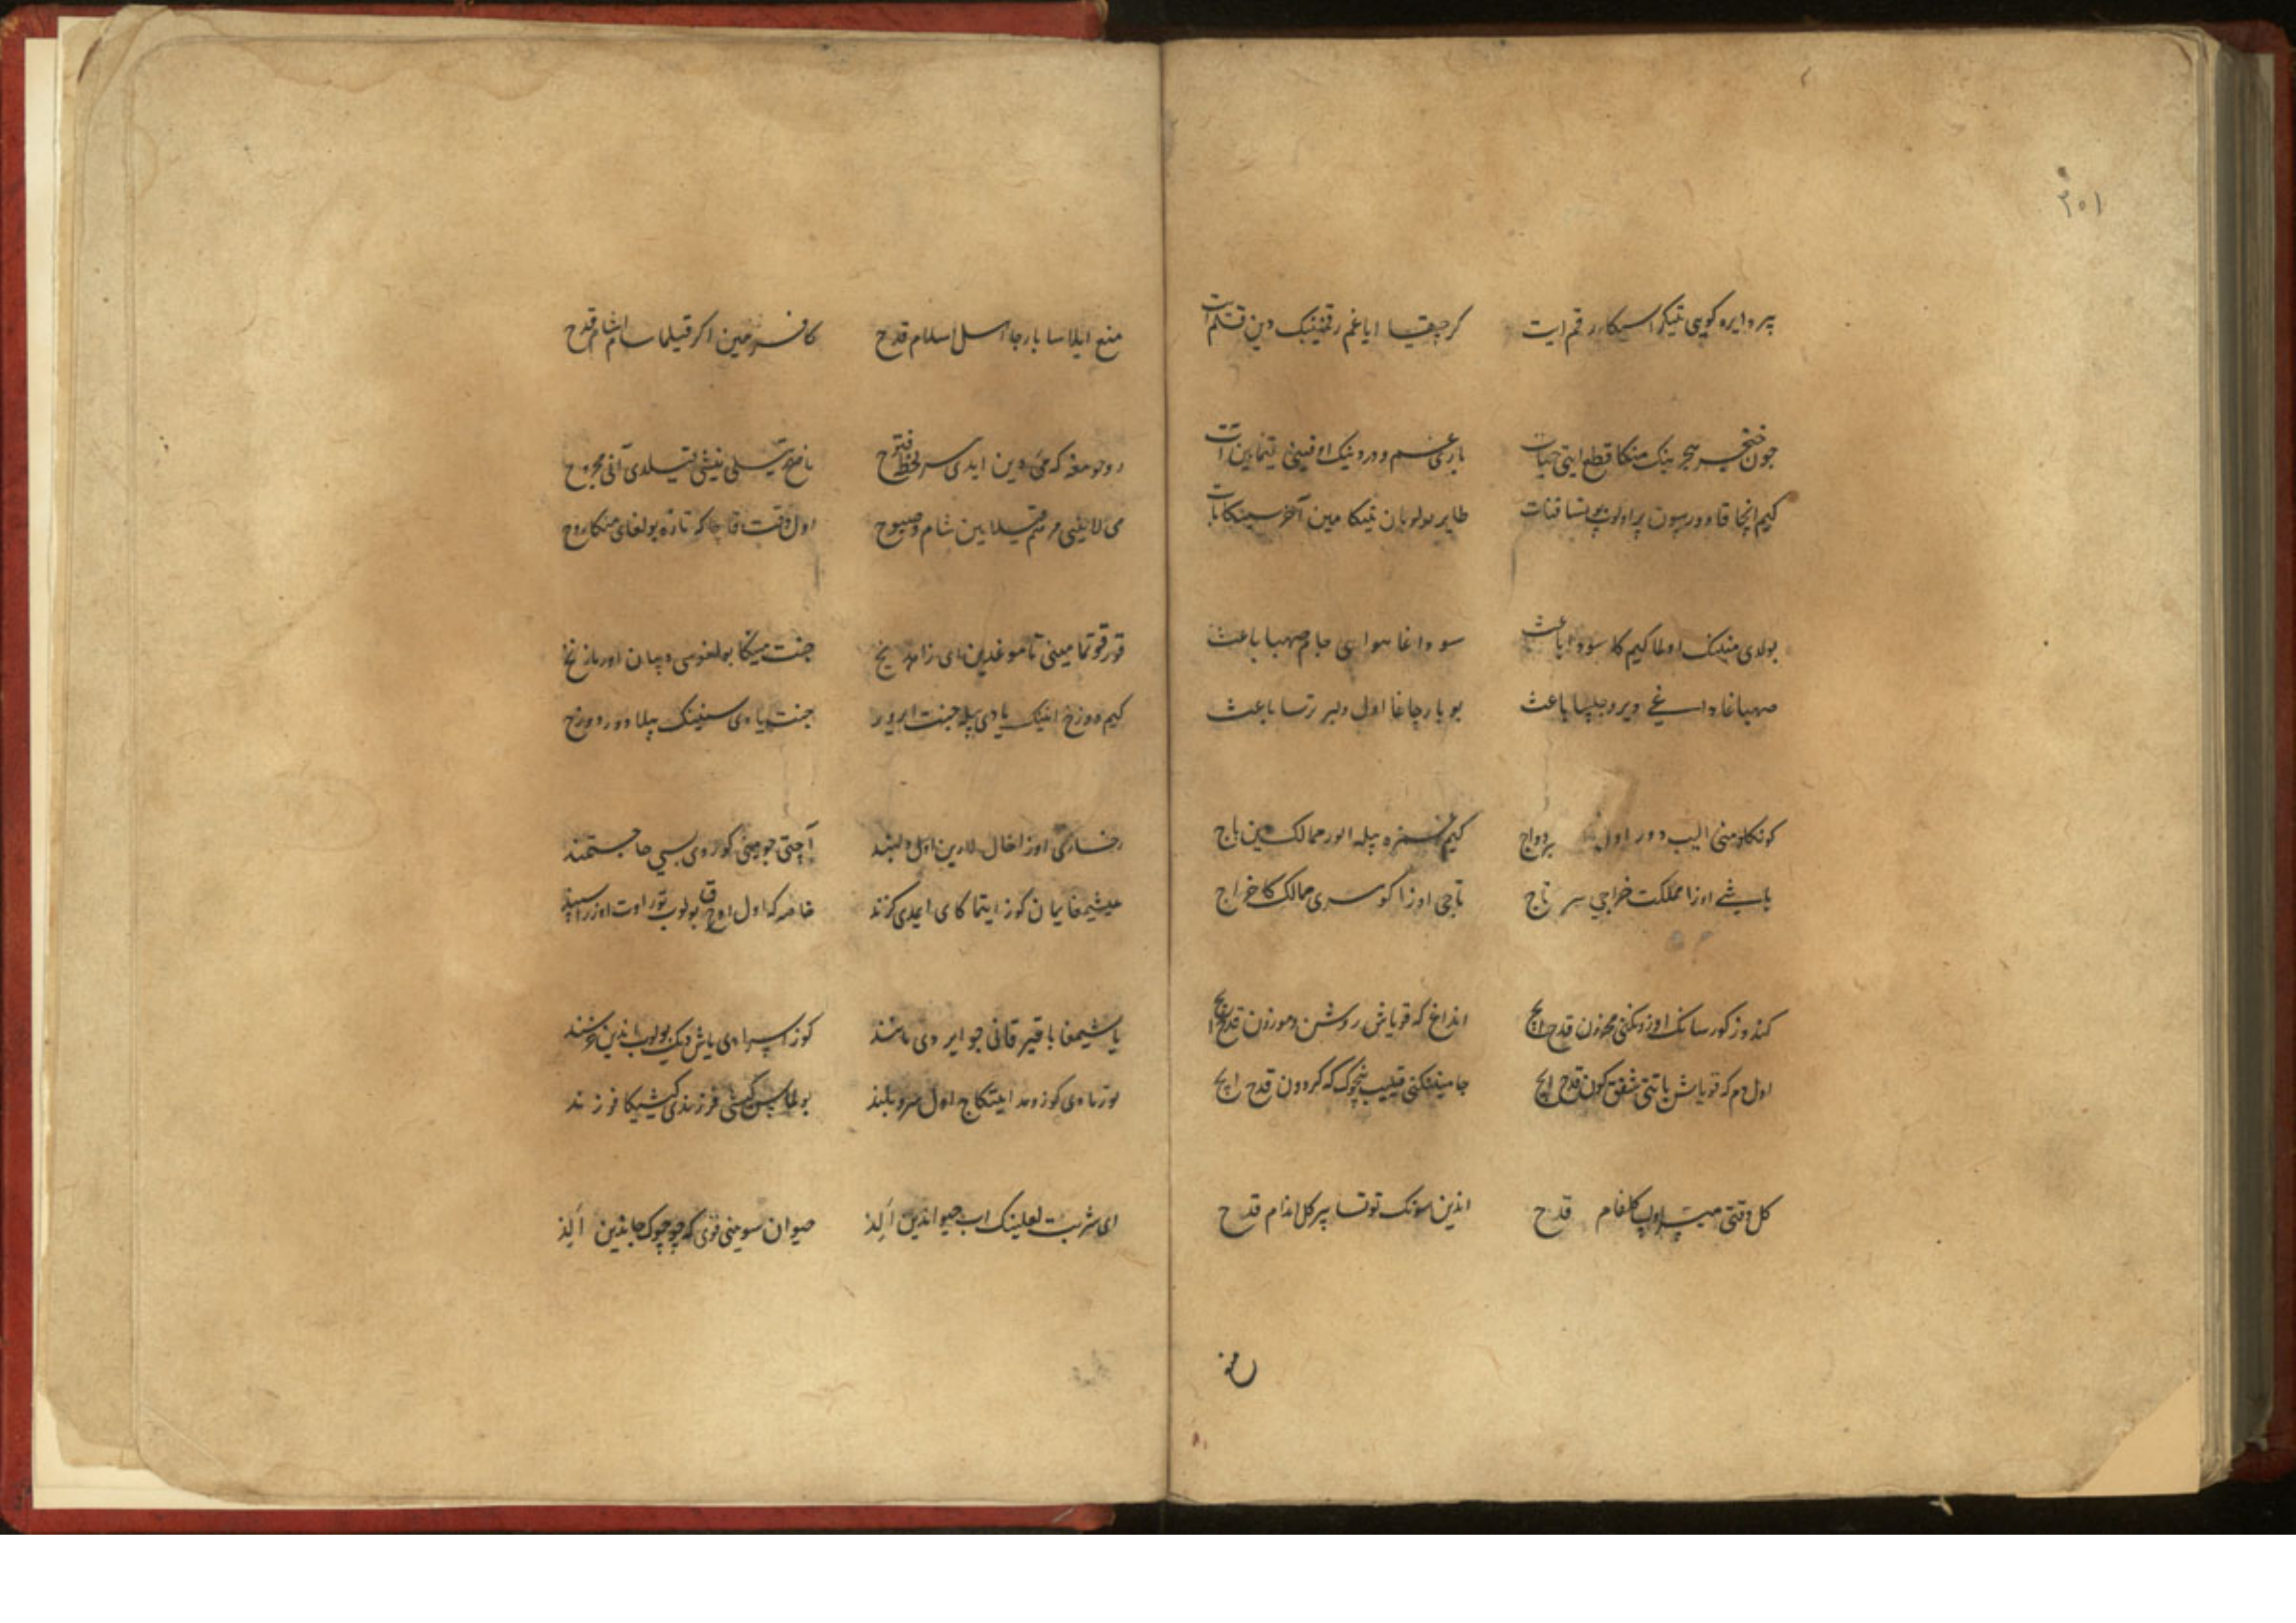 ٢٠١
پر دایره کویی تیکرا سیکا رقم ایت
کر چیقسا ایاغم رقمینیک دین قلم ایت
جون خنجر هجرینک منکا قطع ایتی حیات
باری غم و دردینک اوقینی
کیم انجا قا دورسون پر اولوب بولسا قنات
طایر بولوبان تیکا مین آخر سینکا بات
بولدی مینینک اولماکیم کا سودا باعث
سوداغا هوای جام صهبا باعث
صهباغا داغی دیر و چلیپا باعث
بو بارچاغا اول دلبر ترسا باعث
کونکلومنی الیب دور اول بردواج
کیم غمزه بیله الور ممالک دین باج
باشی اوزا مملکت خراجی سر تاج
تاجی اوزا کوهری ممالک کا خراج
کندوز کورسانک اوزونکنی محزون قدح ایچ
انداغ که قویاش روشن و موزون قدح ایچ
اول دم که قویاش باتتی شفق کون قدح ایچ
جامینکنی قیلیب نچوک که کردون قدح ایچ
کل وقتی میسر اولسا کلفام قدح
اندین سونک توتسا بیر کل اندام قدح
منع
منع ایلاسا بارجا اهل اسلام قدح
کافر مین اکر قیلماسام اشام قدح
روحومغه که می دین ایدی هر لحظه فتوح
ناصح تیلی نیشی قیلدی آنی مجروح
می لایینی مرهم قیلایین شام و صبوح
اول وقت قاچا که تازه بولغای منکا روح
قورقوتما مینی تاموغدین ای زاهد یخ
جنت مینکا بولغوسی دیبان اورما زنخ
کیم دوزخ انینک یادی بیله جنت ایرور
جنت یادی سینینک بیلا دور دوزخ
رخساری اوزا خال لارین اول دلبند
آچتی جو مینی کوردی بسی حاجتمند
عیشیمغا یمان کوز ایتماکای ایردی کزند
خاصه که اول اوچوق بولوب تور اوت اوزرا سپند
یاشیمغا باقیر قانی جو ایردی مانند
کوز اسرادی یاش دیک بولوب اندین خرسند
بوزمادی کوزومد ایتکاج اول سرو بلند
بولماس کیشی فرزندی کیشیکا فرزند
ای شربت لعلینک اب حیواندین الذ
حیوان سویینی قوی که چوچوک جاندین الذ